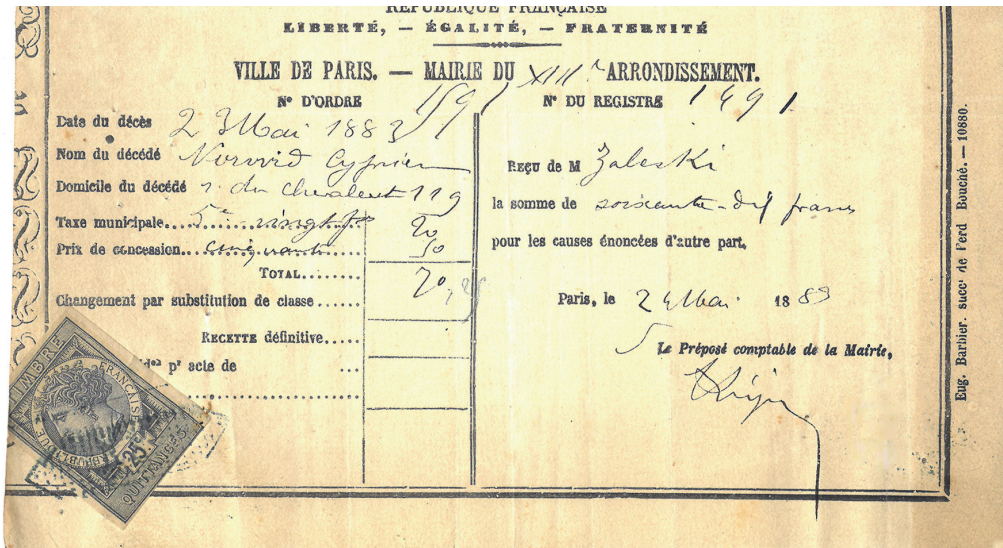 RÉPUBLIQUE FRANÇAISE
LIBERTÉ, — ÉGALITÉ, — FRATERNITÉ
VILLE DE PARIS. — MAIRIE DU XIIIe ARRONDISSEMENT.
N° D'ORDRE 1591
Date du décès 23 Mai 1883
Nom du décédé Norwid Cyprien
Domicile du décédé r. du Chevaleret 119
Taxe municipale 5e vingt f 20
Prix de concession cinquante 50
TOTAL 70,25
Changement par substitution de classe
RECETTE définitive
pr acte de
N° DU REGISTRE 1491
REÇU DE M Zaleski
la somme de soixante-dix francs
pour les causes énoncées d'autre part.
Paris, le 24 Mai 1883
Le Préposé comptable de la Mairie,
Eug. Barbier, succr de Ferd Bouché. — 10880.
TIMBRE
RÉPUBLIQUE FRANÇAISE
25c
QUITTANCES